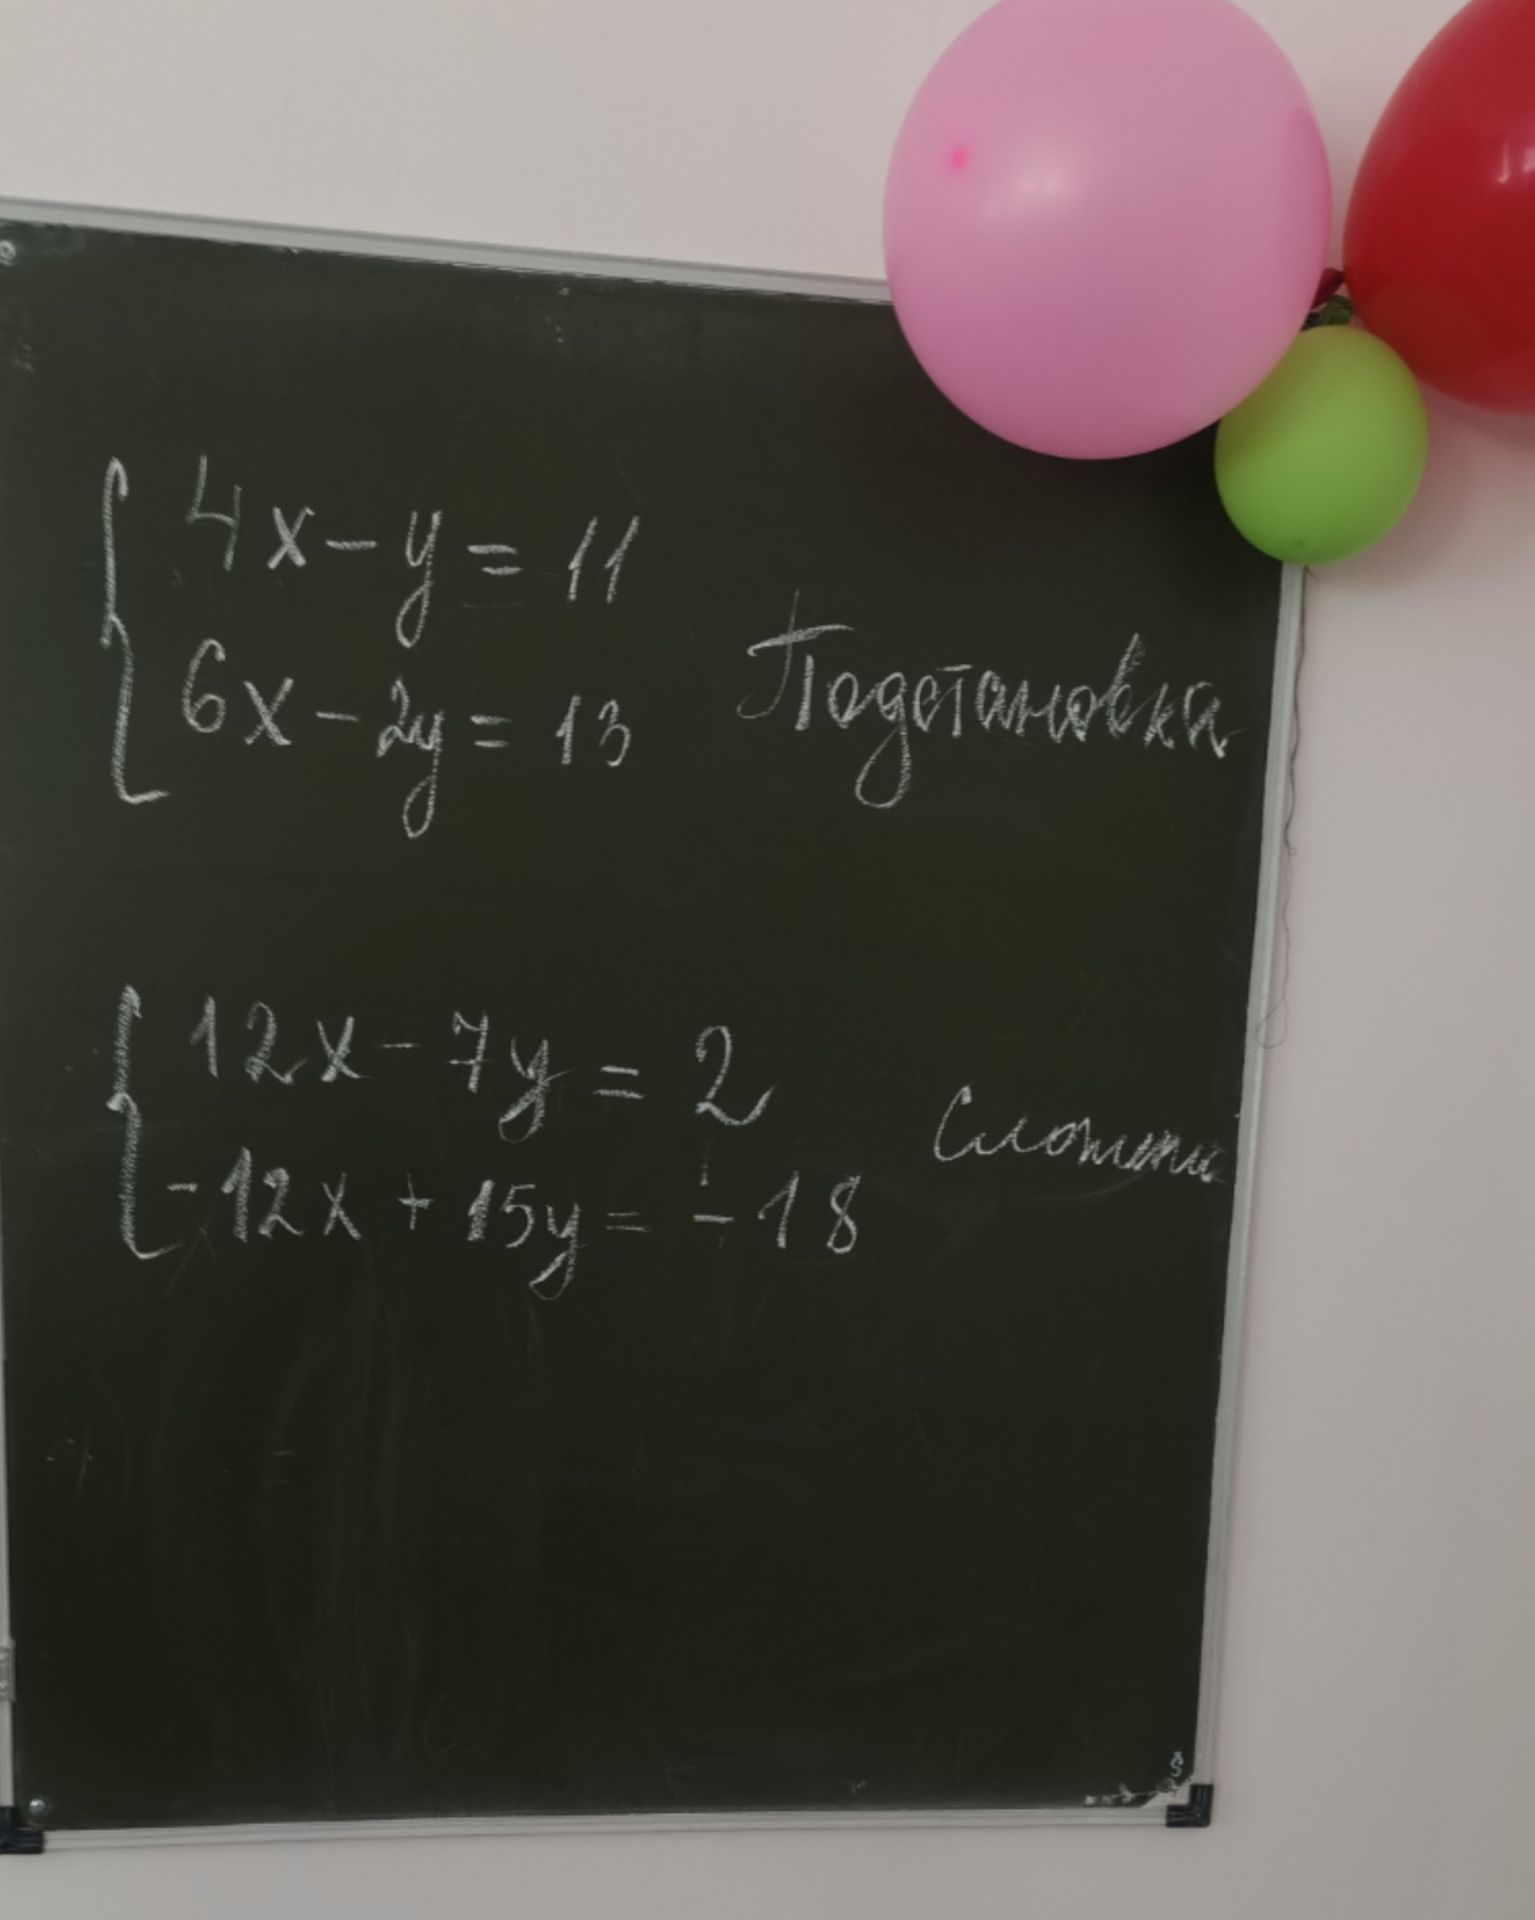 4x - y = 11
6x - 2y = 13
Подстановка
12x - 7y = 2
-12x + 15y = -18